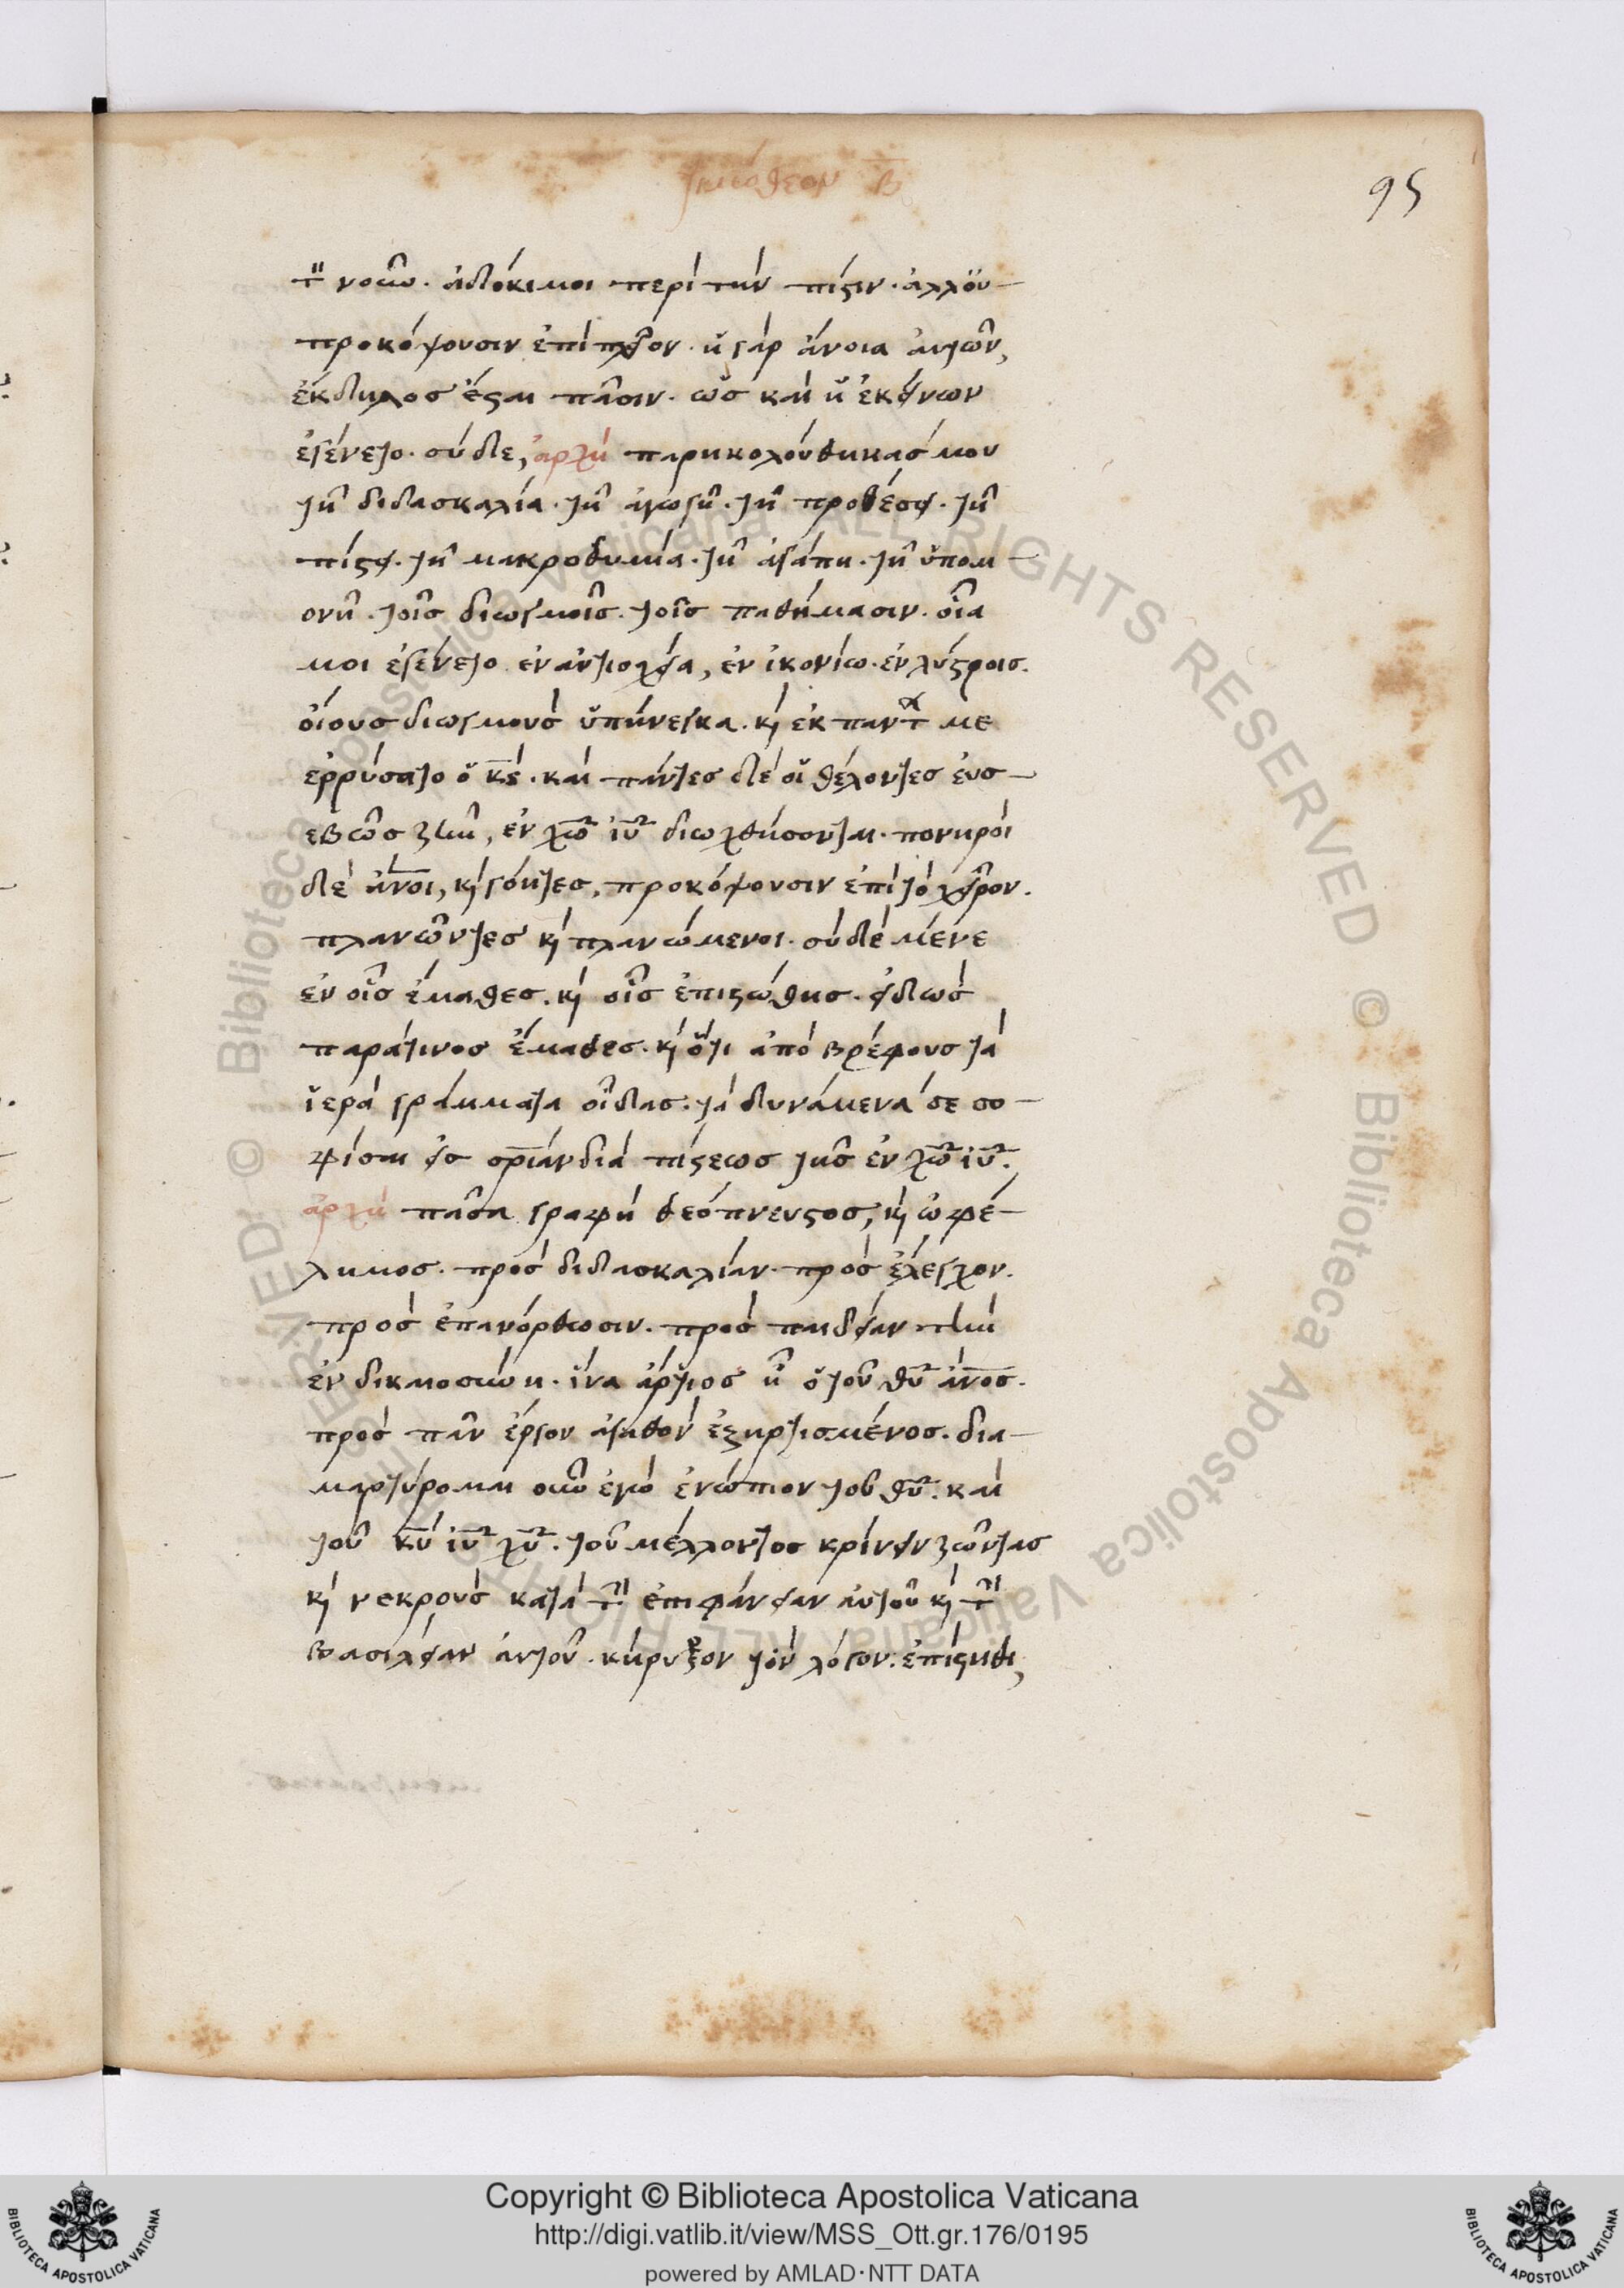 τιμόθεον β
95
τ̅ νοῦν. ἀδόκιμοι περὶ τὴν πίστιν. ἀλλ' οὐ
προκόψουσιν ἐπὶ πλεῖον. ἡ γὰρ ἄνοια αὐτῶν,
ἔκδηλος ἔσται πᾶσιν. ὡς καὶ ἡ ἐκείνων
ἐγένετο. σὺ δὲ, ἀρχὴ παρηκολούθηκάς μου
τῆ διδασκαλία. τῆ ἀγωγῆ. τῆ προθέσει. τῆ
πίστει. τῆ μακροθυμία. τῆ ἀγάπη. τῆ ὑπομ
ονῆ. τοῖς διωγμοῖς. τοῖς παθήμασιν. οἷα
μοι ἐγένετο ἐν ἀντιοχεία, ἐν ἰκονίω. ἐν λύστροις.
οἵους διωγμοὺς ὑπήνεγκα. κὶ ἐκ παντ με
ἐρρύσατο ὁ κ̅ς̅. καὶ πάντες δὲ οἱ θέλοντες εὐσ
εβῶς ζῆν, ἐν χ̅ω̅ ι̅υ̅ διωχθήσονται. πονηροὶ
δὲ ἄν̅ο̅ι̅, κὶ γόητες, προκόψουσιν ἐπὶ τὸ χεῖρον.
πλανῶντες κὶ πλανώμενοι. σὺ δὲ μένε
ἐν οἷς ἔμαθες. κὶ οἷς ἐπιστώθης. εἰδὼς
παρὰ τίνος ἔμαθες. κὶ ὅτι ἀπὸ βρέφους τὰ
ἱερὰ γράμματα οἶδας. τὰ δυνάμενά σε σο
φίσαι εἰς σ̅ρ̅ίαν διὰ πίστεως τῆς ἐν χ̅ω̅ ι̅υ̅.
ἀρχὴ πᾶσα γραφὴ θεόπνευστος, κὶ ὠφέ
λιμος. πρὸς διδασκαλίαν. πρὸς ἔλεγχον.
πρὸς ἐπανόρθωσιν. πρὸς παιδείαν τὴν
ἐν δικαιοσύνη. ἵνα ἄρτιος ἦ ὁ τοῦ θ̅υ̅ ἄν̅ο̅ς̅.
πρὸς πᾶν ἔργον ἀγαθὸν ἐξηρτισμένος. δια
μαρτύρομαι οὖν ἐγὼ ἐνώπιον τοῦ θ̅υ̅. καὶ
τοῦ κ̅υ̅ ι̅υ̅ χ̅υ̅. τοῦ μέλλοντος κρίνειν ζῶντας
κὶ νεκροὺς κατὰ τ̅ ἐπιφάνειαν αὐτοῦ κὶ τ̅
βασιλείαν αὐτοῦ. κήρυξον τὸν λόγον. ἐπίστηθι,
Copyright © Biblioteca Apostolica Vaticana
http://digi.vatlib.it/view/MSS_Ott.gr.176/0195
powered by AMLAD·NTT DATA